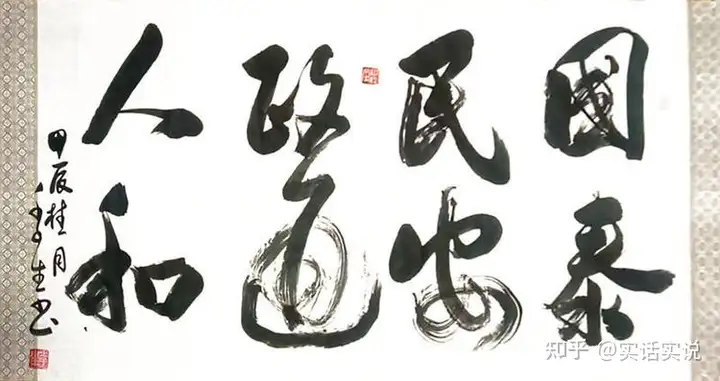 國泰
民安
政通
人和
甲辰桂月
生书
知乎 @实话实说